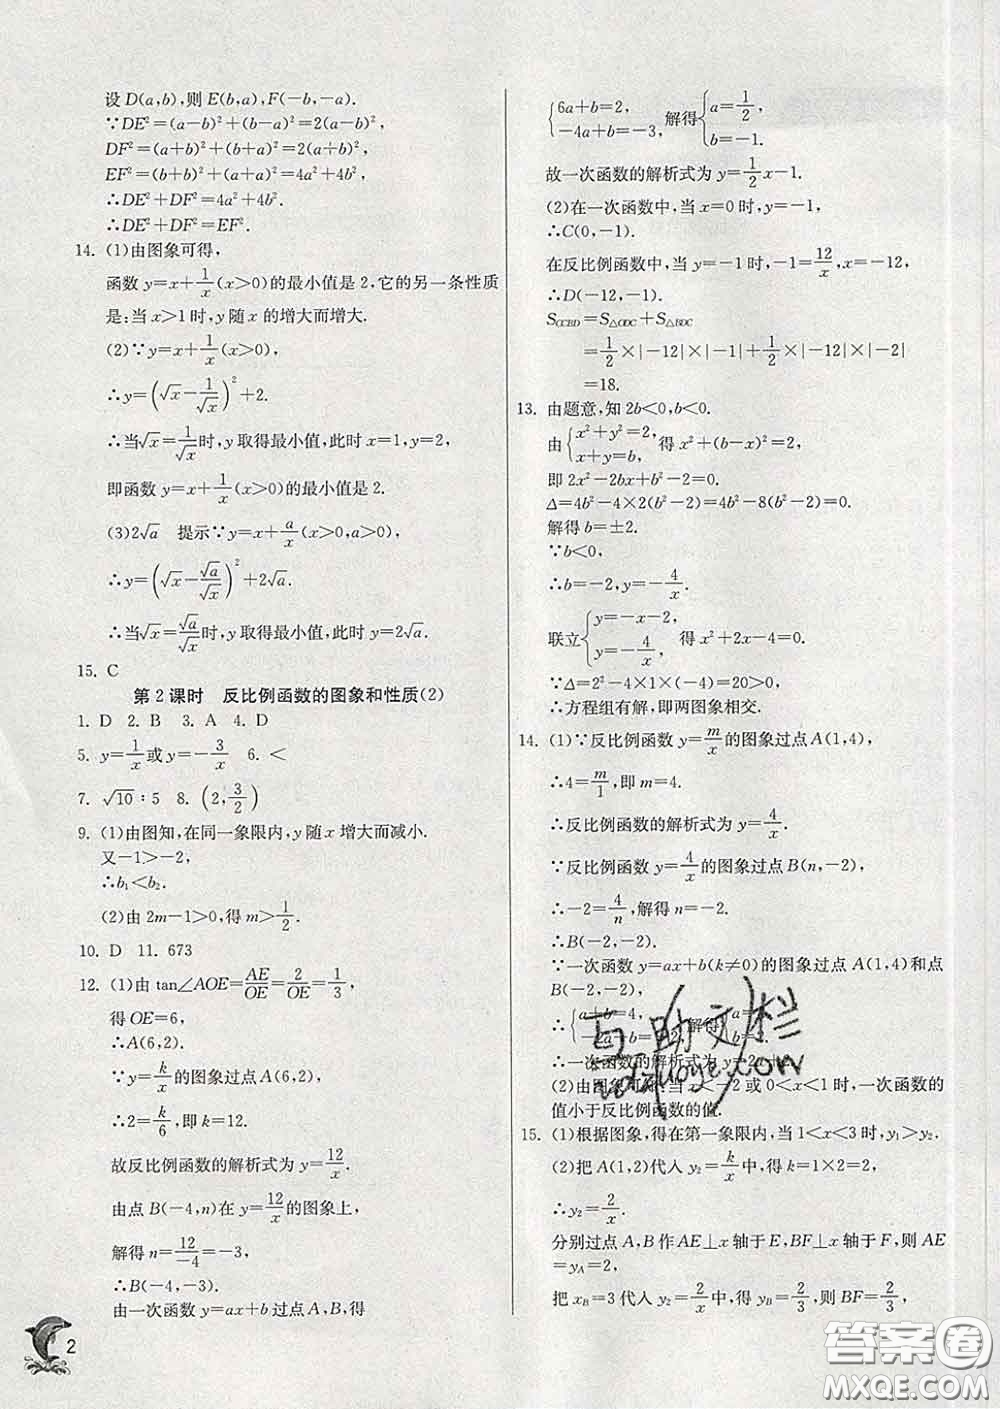 设 D(a,b),则 E(b,a),F(-b,-a).
∵DE²=(a-b)²+(b-a)²=2(a-b)²,
DF²=(a+b)²+(b+a)²=2(a+b)²,
EF²=(b+b)²+(a+a)²=4a²+4b².
∴DE²+DF²=4a²+4b².
∴DE²+DF²=EF².
14. (1)由图象可得,
函数 y=x+1/x(x>0)的最小值是 2,它的另一条性质
是:当 x>1 时,y 随 x 的增大而增大.
(2)∵y=x+1/x(x>0),
∴y=(√x-1/√x)²+2.
∴当√x=1/√x时,y 取得最小值,此时 x=1,y=2,
即函数 y=x+1/x(x>0)的最小值是 2.
(3)2√a 提示∵y=x+a/x(x>0),
∴y=(√x-√a/√x)²+2√a.
∴当√x=√a/√x时,y 取得最小值,此时 y=2√a.
15. C
第 2 课时 反比例函数的图象和性质(2)
1. D 2. B 3. A 4. D
5. y=1/x或 y=-3/x 6. <
7. √10:5 8. (2,3/2)
9. (1)由图知,在同一象限内,y 随 x 增大而减小.
又-1>-2,
∴b₁<b₂.
(2)由 2m-1>0,得 m>1/2.
10. D 11. 673
12. (1)由 tan∠AOE=AE/OE=2/OE=1/3,
得 OE=6,
∴A(6,2).
∵y=k/x的图象过点 A(6,2),
∴2=k/6,即 k=12.
故反比例函数的解析式为 y=12/x.
由点 B(-4,n)在 y=12/x的图象上,
解得 n=12/-4=-3,
∴B(-4,-3).
由一次函数 y=ax+b 过点 A,B,得
2
{6a+b=2, -4a+b=-3, 解得{a=1/2, b=-1.
故一次函数的解析式为 y=1/2x-1.
(2)在一次函数中,当 x=0 时,y=-1,
∴C(0,-1).
在反比例函数中,当 y=-1 时,-1=12/x,x=-12,
∴D(-12,-1).
S△ODC+S△BDC
=1/2×|-12|×|-1|+1/2×|-12|×|-2|
=18.
13. 由题意,知 2b<0,b<0.
由{x²+y²=2, x+y=b, 得 x²+(b-x)²=2,
即 2x²-2bx+b²-2=0.
Δ=4b²-4×2(b²-2)=4b²-8(b²-2)=0.
解得 b=±2.
∵b<0,
∴b=-2,y=-4/x.
联立{y=-x-2, y=-4/x 得 x²+2x-4=0.
∵Δ=2²-4×1×(-4)=20>0,
∴方程组有解,即两图象相交.
14. (1)∵反比例函数 y=m/x的图象过点 A(1,4),
∴4=m/1,即 m=4.
∴反比例函数的解析式为 y=4/x.
∵反比例函数 y=4/x的图象过点 B(n,-2),
∴-2=4/n,解得 n=-2.
∴B(-2,-2).
∵一次函数 y=ax+b(k≠0)的图象过点 A(1,4)和点
B(-2,-2),
∴{a+b=4, -2a+b=-2, 解得{a=2,
∴一次函数的解析式为 y=2x+2.
(2)由图象可知:当 x<-2 或 0<x<1 时,一次函数的
值小于反比例函数的值.
15. (1)根据图象,得在第一象限内,当 1<x<3 时,y₁>y₂.
(2)把 A(1,2)代入 y₂=k/x中,得 k=1×2=2,
∴y₂=2/x.
分别过点 A,B 作 AE⊥x 轴于 E,BF⊥x 轴于 F,则 AE
=yA=2,
把 xB=3 代入 y₂=2/x中,得 yB=2/3,则 BF=2/3,
答案圈
MXQE.COM